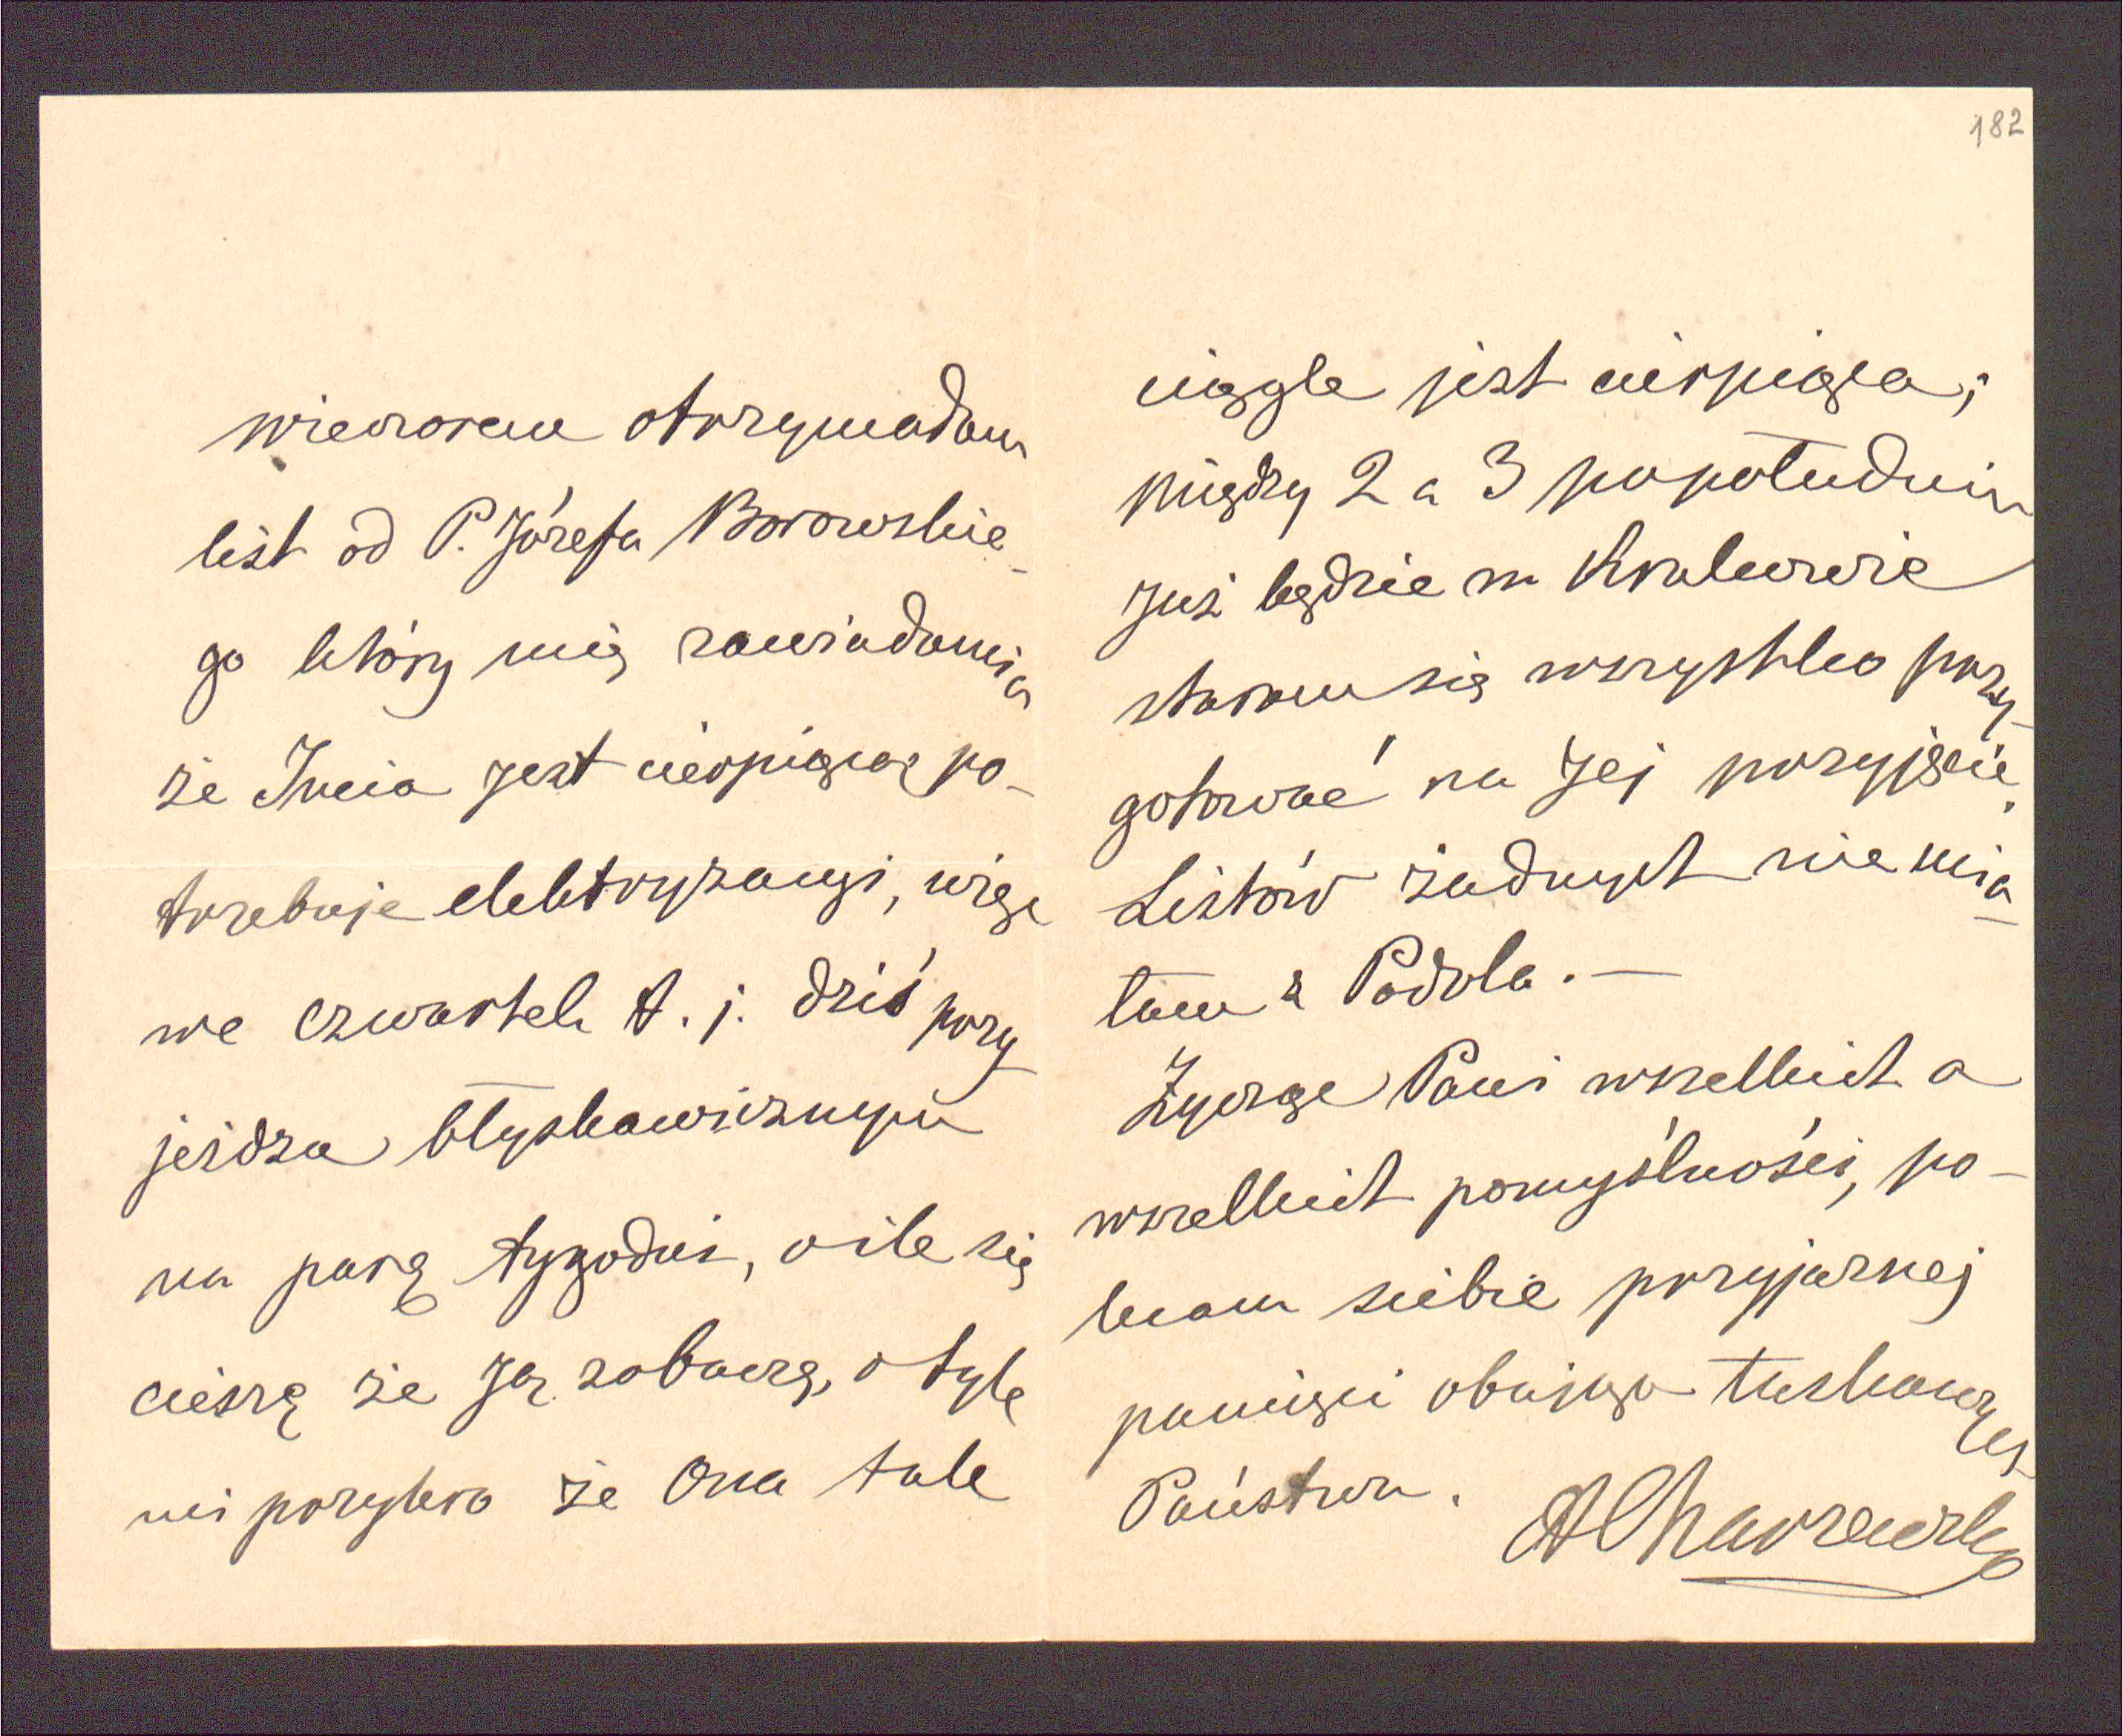 wieczorem otrzymałam
list od P. Józefa Borowskie-
go który mię zawiadamia
że Incia jest cierpiąca, po-
trzebuje elektryzacyi, więc
we czwartek t. j. dziś przy
jeżdza błyskawicznym
na parę tygodni, o ile się
cieszę że Ją zobaczę, o tyle
mi przykro że Ona tak
182
ciągle jest cierpiąca;
między 2 a 3 popołudniu
już będzie w Krakowie
staram się wszystko przy-
gotować na Jej przyjęcie.
Listów żadnych nie mia-
łam z Podola. —
Życzę Pani wszelkich a
wszelkich pomyślności, po-
lecam siebie przyjaznej
pamięci obojga łaskawych
Państwa.